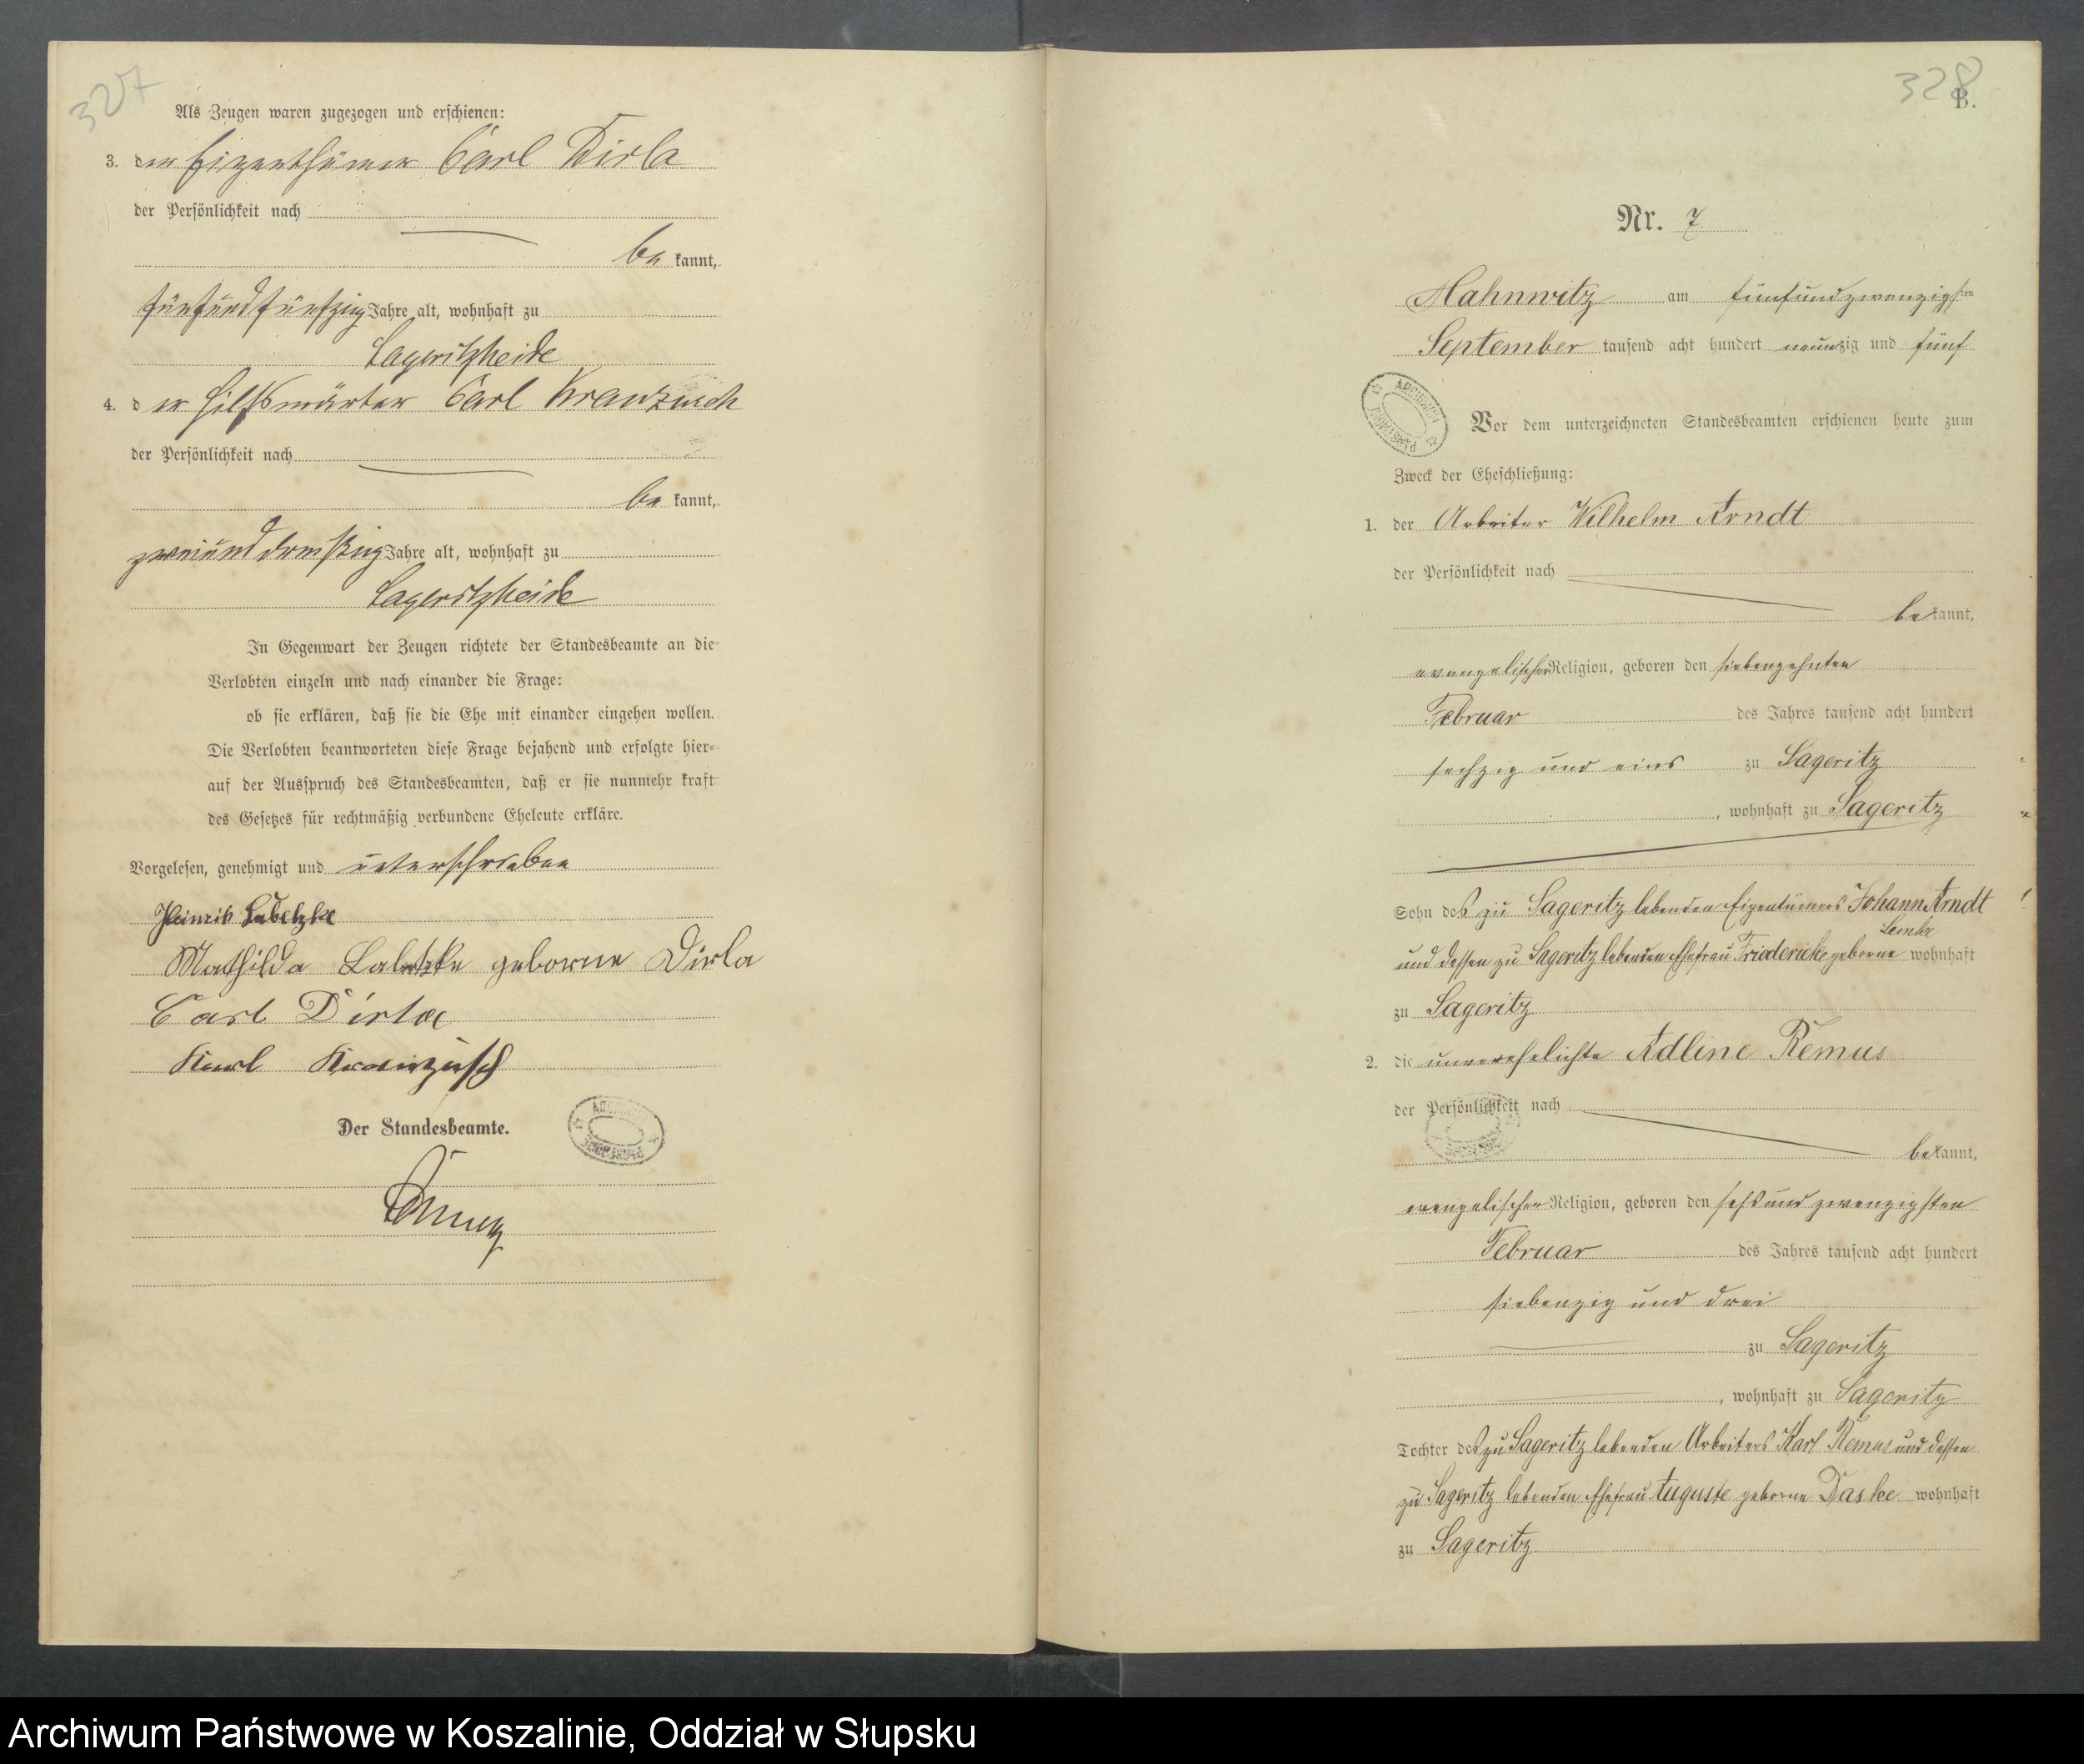 327
Als Zeugen waren zugezogen und erschienen:
3. der Eigenthümer Carl Dirla
der Persönlichkeit nach
be kannt,
fünfundfünfzig Jahre alt, wohnhaft zu
Lageritzheide
4. der Hilfswärter Carl Kranzusch
der Persönlichkeit nach
be kannt,
zweiunddreißig Jahre alt, wohnhaft zu
Lageritzheide
In Gegenwart der Zeugen richtete der Standesbeamte an die
Verlobten einzeln und nach einander die Frage:
ob sie erklären, daß sie die Ehe mit einander eingehen wollen.
Die Verlobten beantworteten diese Frage bejahend und erfolgte hier-
auf der Ausspruch des Standesbeamten, daß er sie nunmehr kraft
des Gesetzes für rechtmäßig verbundene Eheleute erkläre.
Vorgelesen, genehmigt und unterschrieben
Heinrich Labetzke
Mathilda Labetzke geborne Dirla
Carl Dirla
Karl Kranzusch
Der Standesbeamte.
328
B.
Nr. 7
Mahnwitz am fünfundzwanzigsten
September tausend acht hundert neunzig und fünf
Vor dem unterzeichneten Standesbeamten erschienen heute zum
Zweck der Eheschließung:
1. der Arbeiter Wilhelm Arndt
der Persönlichkeit nach
bekannt,
evangelischer Religion, geboren den siebenzehnten
Februar des Jahres tausend acht hundert
sechzig und eins zu Sageritz
, wohnhaft zu Sageritz
Sohn des zu Sageritz lebenden Eigentümers Johann Arndt
Lemke
und dessen zu Sageritz lebenden Ehefrau Friedericke geborne wohnhaft
zu Sageritz
2. die unverehelichte Adline Remus
der Persönlichkeit nach
bekannt,
evangelischer Religion, geboren den sechsundzwanzigsten
Februar des Jahres tausend acht hundert
siebenzig und drei
zu Sageritz
, wohnhaft zu Sageritz
Tochter des zu Sageritz lebenden Arbeiters Karl Remus und dessen
zu Sageritz lebenden Ehefrau Auguste geborne Daske wohnhaft
zu Sageritz
Archiwum Państwowe w Koszalinie, Oddział w Słupsku